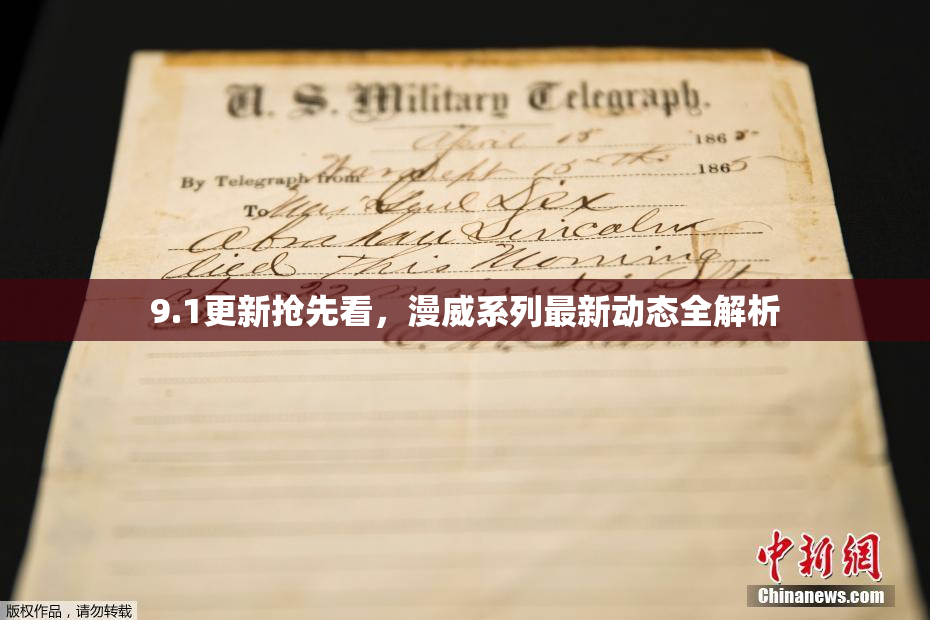 U. S. Military Telegraph.
April 15 1865
By Telegraph from War Dept 15th 1865
To Maj Genl Dix
Abraham Lincoln
died This Morning
22 minutes after
9.1更新抢先看，漫威系列最新动态全解析
E. M. Stanton
中新网
Chinanews.com
版权作品，请勿转载